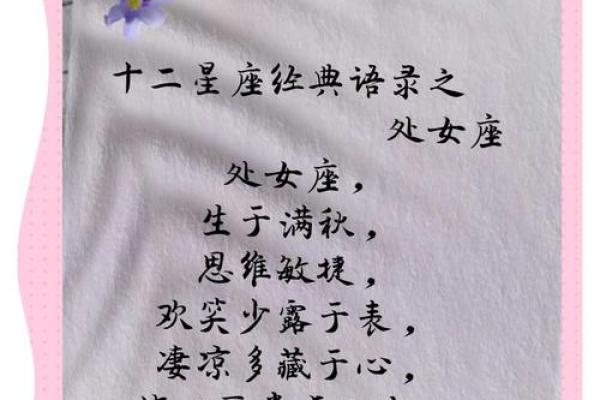 十二星座经典语录之
处女座
处女座，
生于满秋，
思维敏捷，
欢笑少露于表，
凄凉多藏于心，